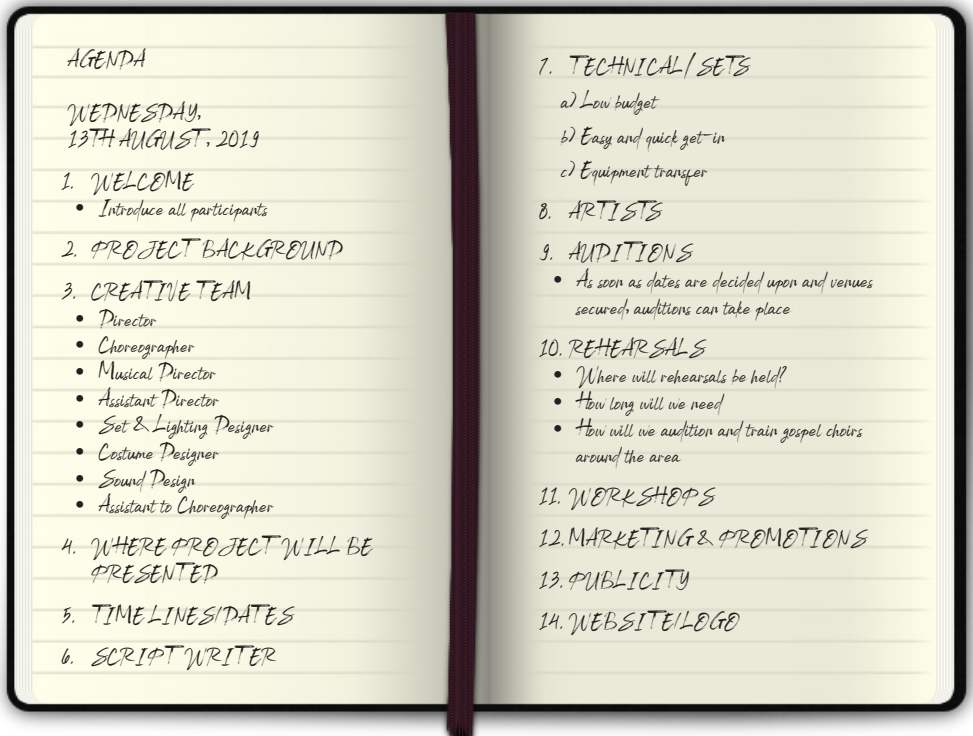 AGENDA
WEDNESDAY,
13TH AUGUST, 2019
1. WELCOME
• Introduce all participants
2. PROJECT BACKGROUND
3. CREATIVE TEAM
• Director
• Choreographer
• Musical Director
• Assistant Director
• Set & Lighting Designer
• Costume Designer
• Sound Design
• Assistant to Choreographer
4. WHERE PROJECT WILL BE
PRESENTED
5. TIMELINES/DATES
6. SCRIPT WRITER
7. TECHNICAL/SETS
a) Low budget
b) Easy and quick get-in
c) Equipment transfer
8. ARTISTS
9. AUDITIONS
• As soon as dates are decided upon and venues
secured, auditions can take place
10. REHEARSALS
• Where will rehearsals be held?
• How long will we need
• How will we audition and train gospel choirs
around the area
11. WORKSHOPS
12. MARKETING & PROMOTIONS
13. PUBLICITY
14. WEBSITE/LOGO